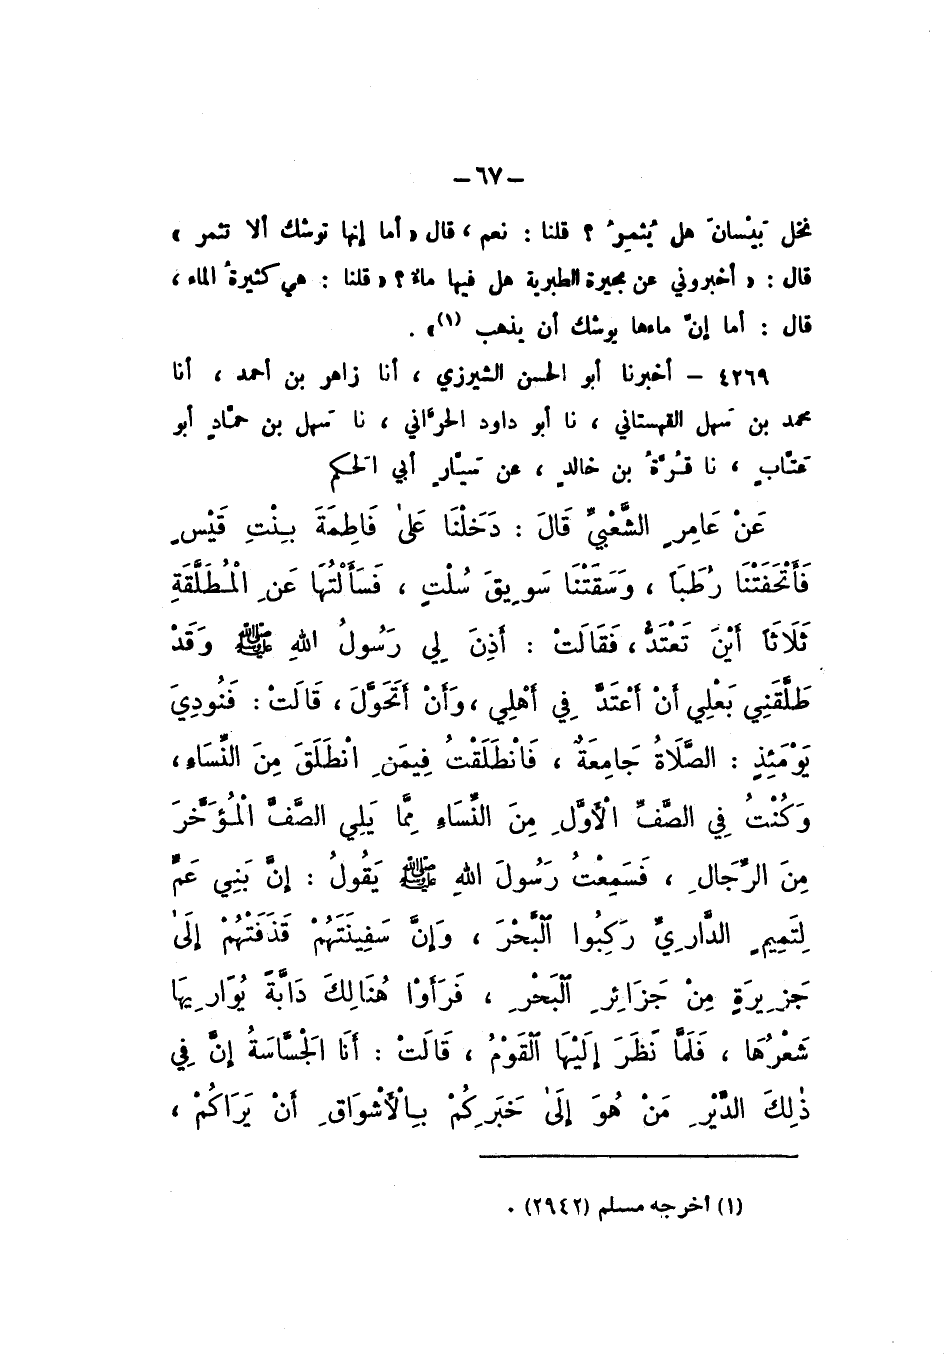 – ٦٧ –
نخل بَيْسانَ هل يُثمِرُ ؟ قلنا : نعم ، قال « أما إنها توشك ألا تثمر »
قال : « أخبروني عن بحيرة الطبرية هل فيها ماءٌ ؟ » قلنا : هي كثيرةُ الماء ،
قال : أما إنَّ ماءها يوشك أن يذهب (١)» .
٤٢٦٩ – أخبرنا أبو الحسن الشيرزي ، أنا زاهر بن أحمد ، أنا
محمد بن سَهل القهستاني ، نا أبو داود الحرَّاني ، نا سَهل بن حمَّادٍ أبو
عتَّابٍ ، نا قُرَّةُ بن خالدٍ ، عن سَيَّارٍ أبي الحَكم
عَنْ عَامِرٍ الشَّعْبِيِّ قَالَ : دَخَلْنَا عَلَىٰ فَاطِمَةَ بِنْتِ قَيْسٍ
فَأَتْحَفَتْنَا رُطَبَاً ، وَسَقَتْنَا سَوِيقَ سُلْتٍ ، فَسَأَلْتُهَا عَنِ الْمُطَلَّقَةِ
ثَلَاثَاً أَيْنَ تَعْتَدُّ ، فَقَالَتْ : أَذِنَ لِي رَسُولُ اللهِ ﷺ وَقَدْ
طَلَّقَنِي بَعْلِي أَنْ أَعْتَدَّ فِي أَهْلِي ، وَأَنْ أَتَحَوَّلَ ، قَالَتْ : فَنُودِيَ
يَوْمَئِذٍ : الصَّلَاةُ جَامِعَةٌ ، فَانْطَلَقْتُ فِيمَنِ انْطَلَقَ مِنَ النِّسَاءِ ،
وَكُنْتُ فِي الصَّفِّ الْأَوَّلِ مِنَ النِّسَاءِ مِمَّا يَلِي الصَّفَّ الْمُؤَخَّرَ
مِنَ الرِّجَالِ ، فَسَمِعْتُ رَسُولَ اللهِ ﷺ يَقُولُ : إِنَّ بَنِي عَمٍّ
لِتَمِيمٍ الدَّارِيِّ رَكِبُوا ٱلْبَحْرَ ، وَإِنَّ سَفِينَتَهُمْ قَذَفَتْهُمْ إِلَىٰ
جَزِيرَةٍ مِنْ جَزَائِرِ ٱلْبَحْرِ ، فَرَأَوْا هُنَالِكَ دَابَّةً يُوَارِيهَا
شَعْرُهَا ، فَلَمَّا نَظَرَ إِلَيْهَا ٱلْقَوْمُ ، قَالَتْ : أَنَا الْجَسَّاسَةُ إِنَّ فِي
ذٰلِكَ الدَّيْرِ مَنْ هُوَ إِلَىٰ خَبَرِكُمْ بِالْأَشْوَاقِ أَنْ يَرَاكُمْ ،
(١) أخرجه مسلم (٢٩٤٢) .